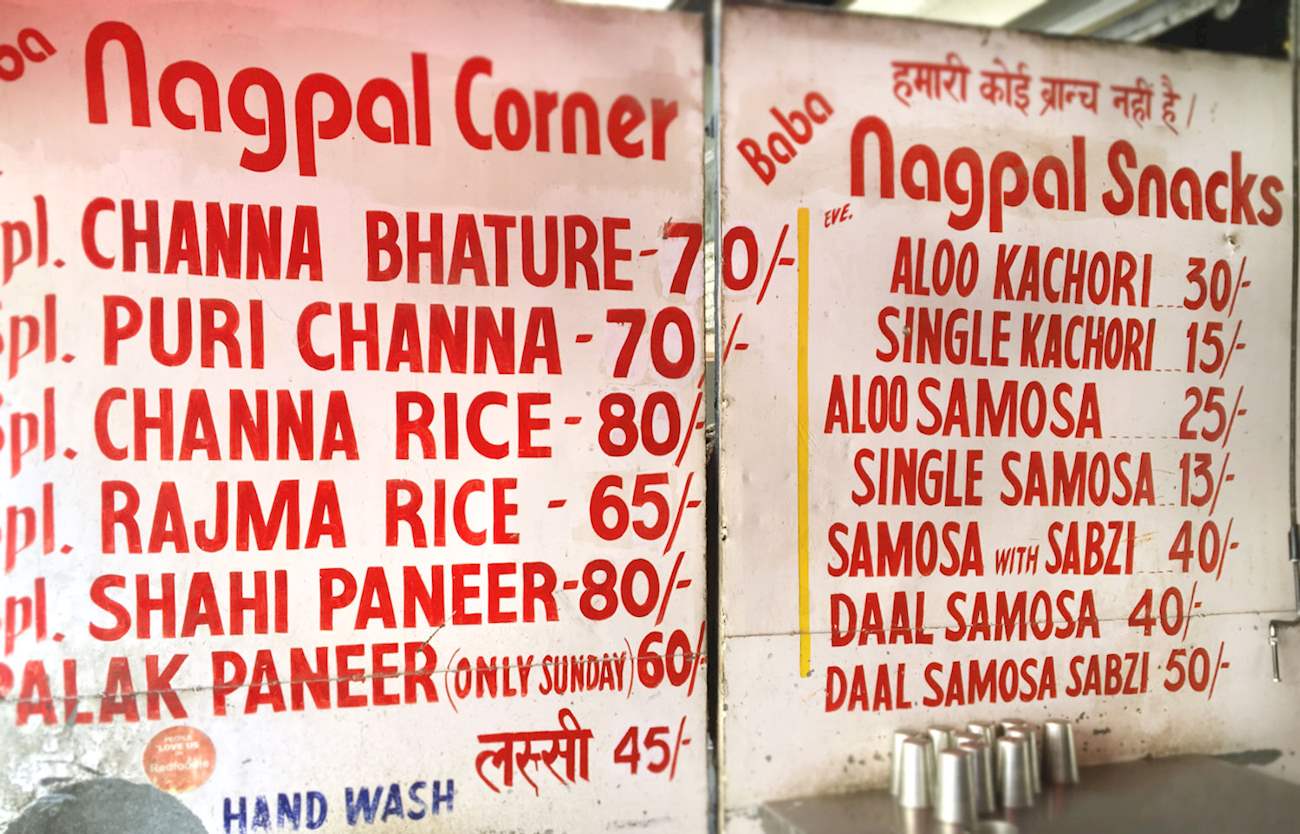 Baba Nagpal Corner
Spl. CHANNA BHATURE - 70/-
Spl. PURI CHANNA - 70/-
Spl. CHANNA RICE - 80/-
Spl. RAJMA RICE - 65/-
Spl. SHAHI PANEER - 80/-
PALAK PANEER (ONLY SUNDAY) 60/-
लस्सी 45/-
PEOPLE
LOVE US
HAND WASH
हमारी कोई ब्रान्च नहीं है।
Baba Nagpal Snacks
EVE.
ALOO KACHORI 30/-
SINGLE KACHORI 15/-
ALOO SAMOSA 25/-
SINGLE SAMOSA 13/-
SAMOSA WITH SABZI 40/-
DAAL SAMOSA 40/-
DAAL SAMOSA SABZI 50/-